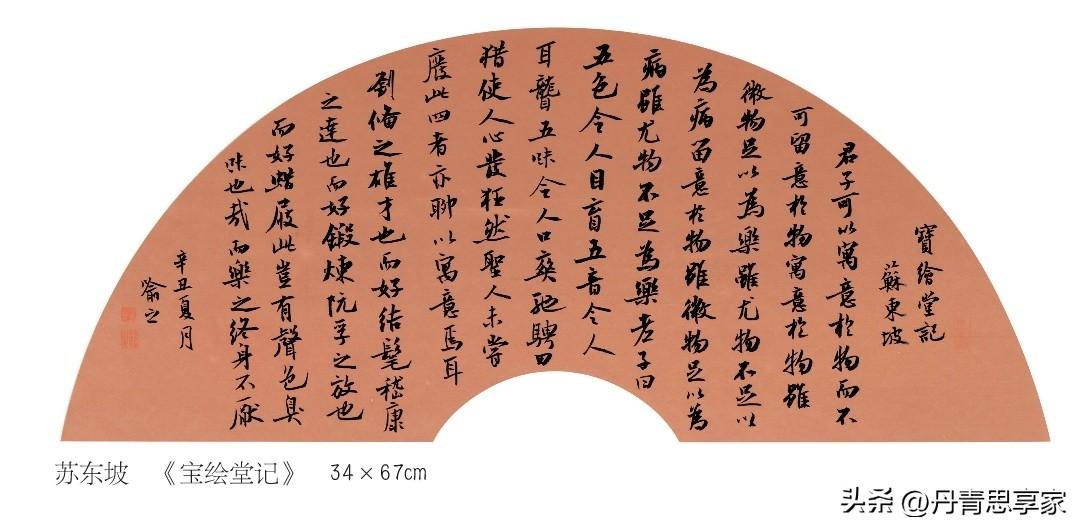 寶繪堂記
蘇東坡
君子可以寓意於物而不
可留意於物寓意於物雖
微物足以為樂雖尤物不足以
為病留意於物雖微物足以為
病雖尤物不足為樂老子曰
五色令人目盲五音令人
耳聾五味令人口爽馳騁田
猎使人心發狂然聖人未嘗
廢此四者亦聊以寓意焉耳
劉備之雄才也而好结髦嵇康
之達也而好鍛煉阮孚之放也
而好蜡屐此豈有聲色臭
味也哉而樂之终身不厭
辛丑夏月
苏东坡 《宝绘堂记》 34×67cm
头条 @丹青思享家